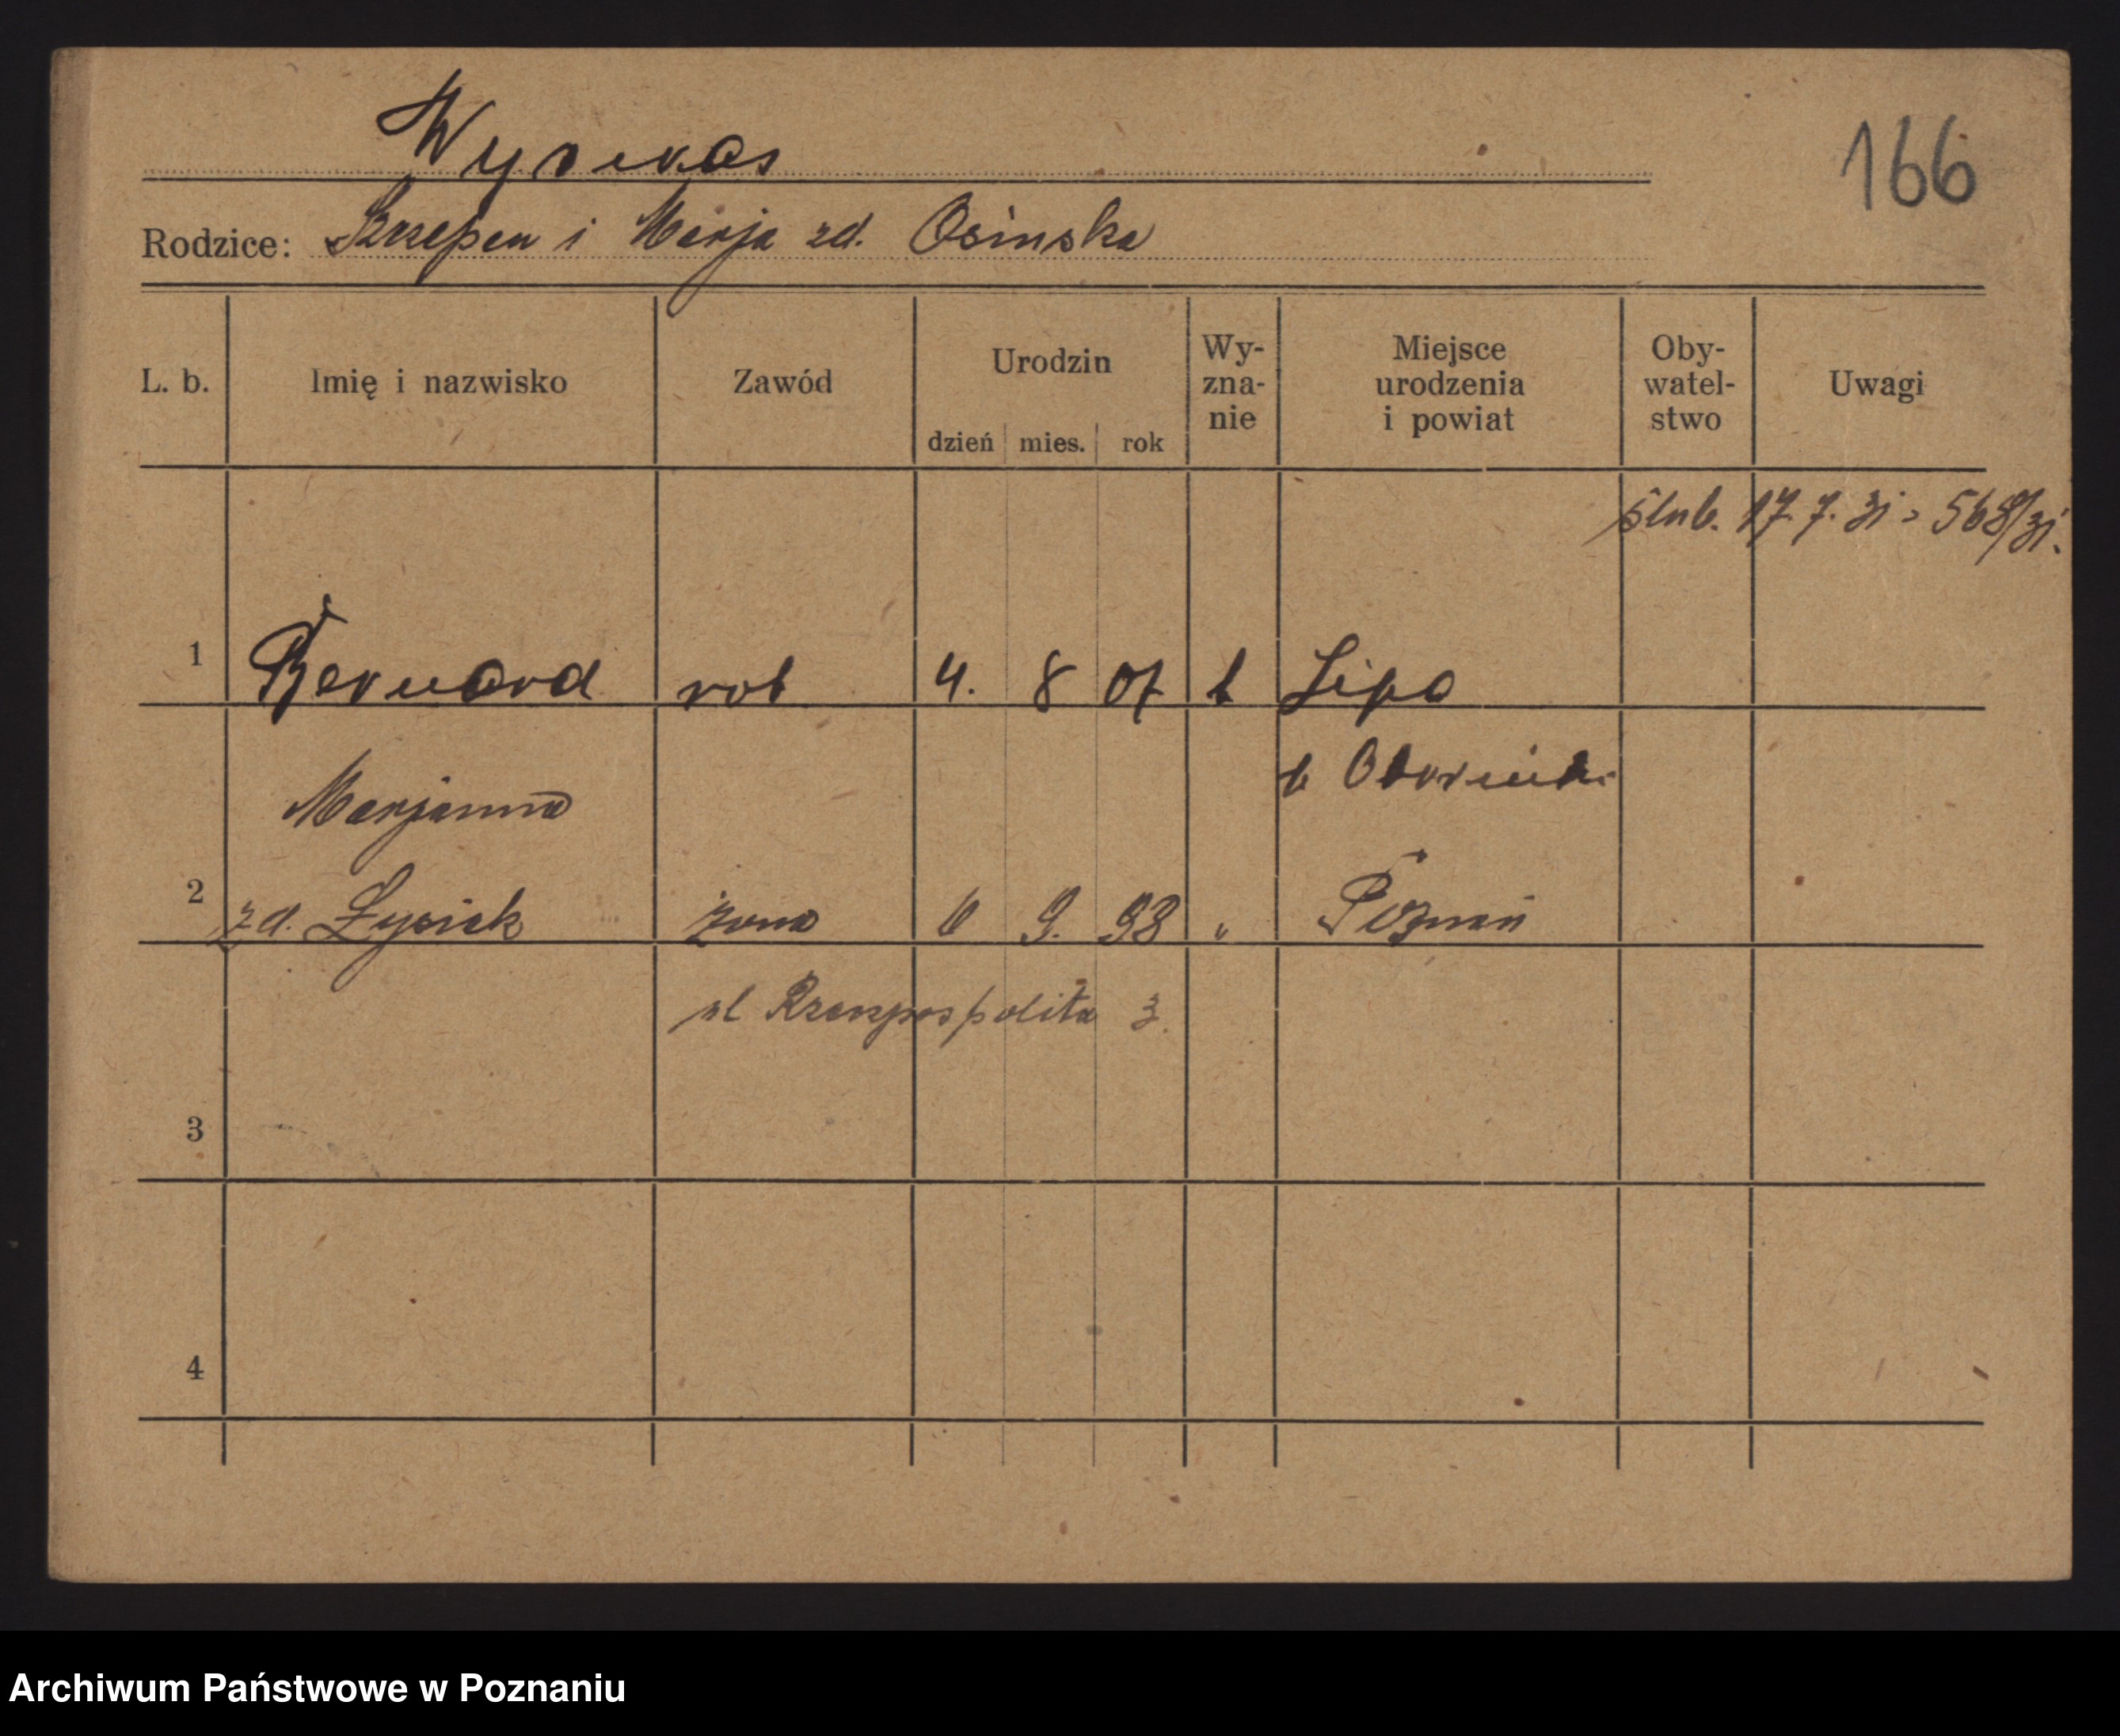 166
Rodzice: Szczepan i Marja zd. Osinska
L. b. Imię i nazwisko Zawód Urodzin Wy- Miejsce Oby- Uwagi
zna- urodzenia watel-
nie i powiat stwo
dzień mies. rok
ślub. 17. 7. 31 568/31.
1 Bernard rob 4. 8 07 k Lipa
Marjanna
2 zd. Łysiak żona 6 9. 98 " Poznań
ul Rzeczpospolita 3.
3
4
Archiwum Państwowe w Poznaniu